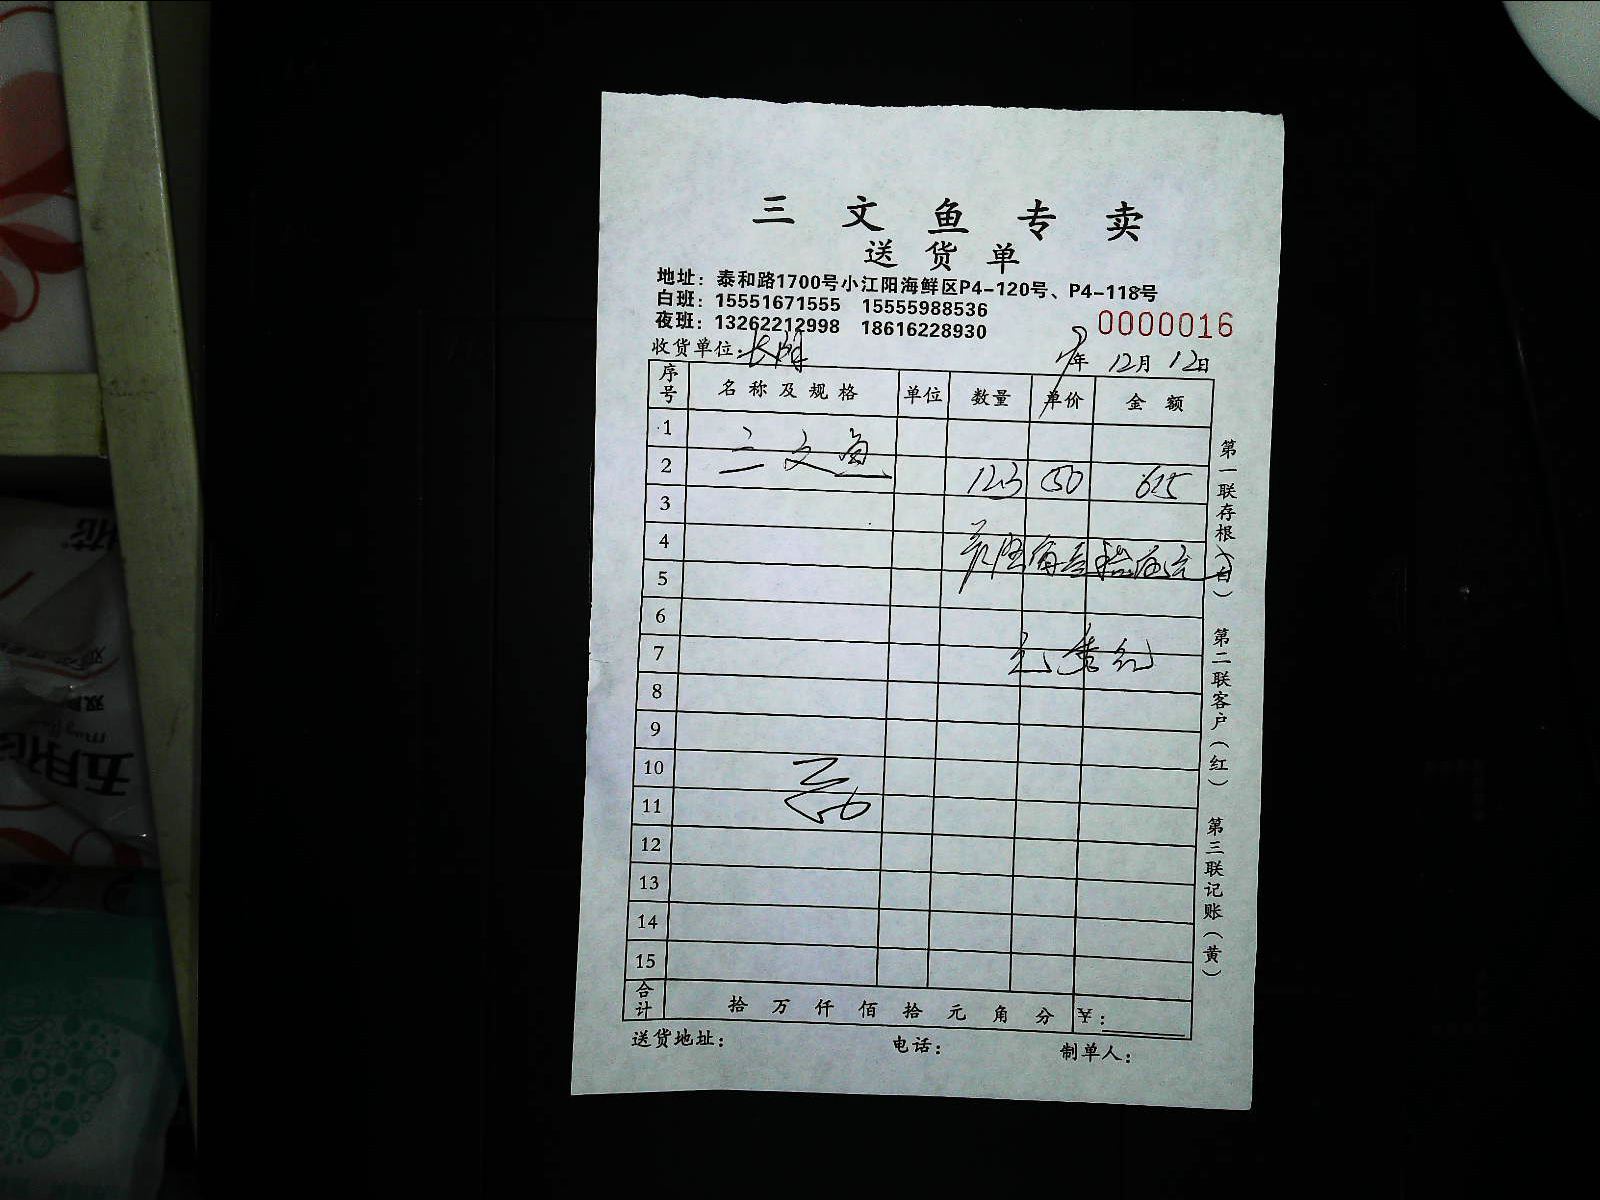 三文鱼专卖
送货单
地址：泰和路1700号小江阳海鲜区P4-120号、P4-118号
白班：15551671555 15555988536
夜班：13262212998 18616228930
0000016
收货单位：
年 12月 12日
序号 名称及规格 单位 数量 单价 金额
1
三文鱼
2 123 50 615
3
4
5
6
7
8
9
10
11
12
13
14
15
合计 拾 万 仟 佰 拾 元 角 分 ￥：
送货地址： 电话： 制单人：
第一联存根（白） 第二联客户（红） 第三联记账（黄）
五月花